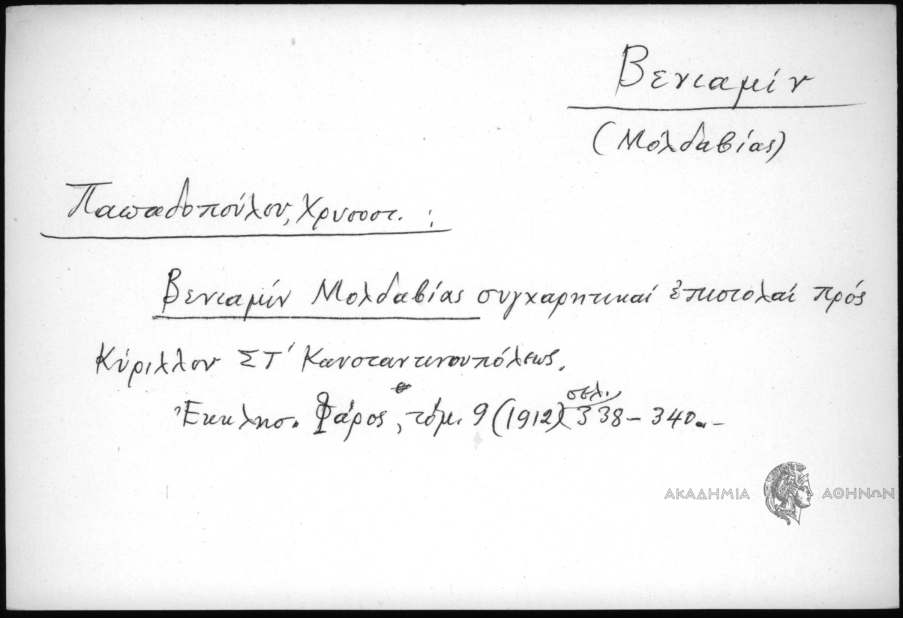 Βενιαμίν
(Μολδαβίας)
Παπαδοπούλου, Χρυσοστ. :
Βενιαμίν Μολδαβίας συγχαρητικαί ἐπιστολαί πρός
Κύριλλον ΣΤ΄ Κωνσταντινουπόλεως.
Ἐκκλησ. Φάρος, τόμ. 9 (1912) σελ. 338 – 340.–
ΑΚΑΔΗΜΙΑ ΑΘΗΝΩΝ